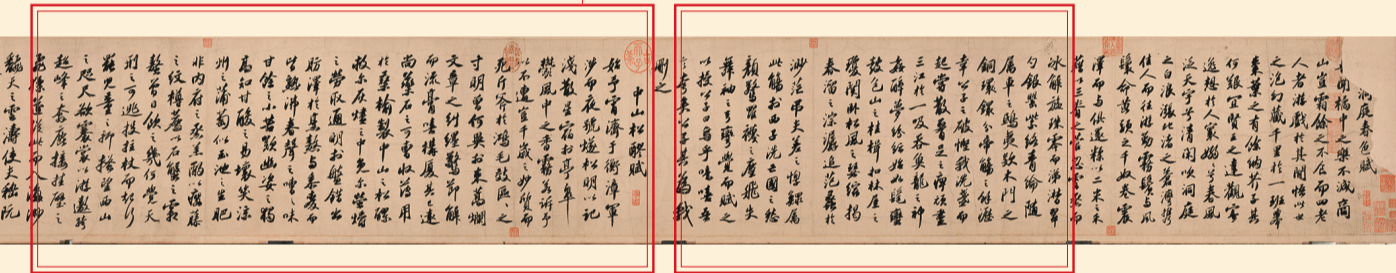 洞庭春色賦
吾聞橘中之樂不減商
山豈霜餘之不食而四老
人者游戲於其間悟此世
之泡幻藏千里於一班舉
棗葉之有餘納芥子其
何艱宜賢王之達觀寄
逸想於人寰嫋嫋兮春風
泛天宇兮清閑吹洞庭
之白浪漲北渚之蒼灣攜
佳人而往游勒霧鬢與風
鬟命黃頭之千奴卷震
澤而與俱還糅以二米之禾
藉以三脊之菅忽雲烝而
冰解旋珠零而涕潸翠
勺銀罌紫絡青綸隨
屬車之鴟夷款木門之
銅鐶分帝觴之餘瀝
幸公子之破慳我洗盞而
起嘗散腰足之痺頑盡
三江於一吸吞魚龍之神
姦醉夢紛紜始如髦蠻
鼓包山之桂楫扣林屋之
瓊關臥松風之瑟縮揭
春溜之淙潺追范蠡於
渺茫弔夫差之惸鰥屬
此觴於西子洗亡國之愁
顏驚羅襪之塵飛失
舞袖之弓彎覺而賦之
以授公子曰烏乎噫嘻吾
言夸矣公子其為我
刪之
中山松醪賦
始予宵濟於衡漳軍
涉而夜號燧松明以記
淺散星宿於亭皋
鬱風中之香霧若訴予
以不遭豈千歲之妙質而
死斤斧於鴻毛效區區之
寸明曾何異於束蒿爛
文章之糾纆驚節解
而流膏嘻構厦其已遠
尚藥石之可曹收薄用
於桑榆製中山之松醪
救爾灰燼之中免爾螢爝
之勞取通明於盤錯出
肪澤於烹熬與黍麥而
皆熟沸舂聲之嘈嘈味
甘餘而小苦歎幽姿之獨
高知甘酸之易壞笑涼
州之蒲萄似玉池之生肥
非内府之蒸羔酌以癭藤
之紋樽薦以石蟹之霜
螯曾日飲之幾何覺天
刑之可逃投拄杖而起行
罷兒童之抑搔望西山
之咫尺欲褰裳以游遨跨
超峰之奔鹿接挂壁之
飛猱遂從此而入海渺
翻天之雲濤使夫嵇阮